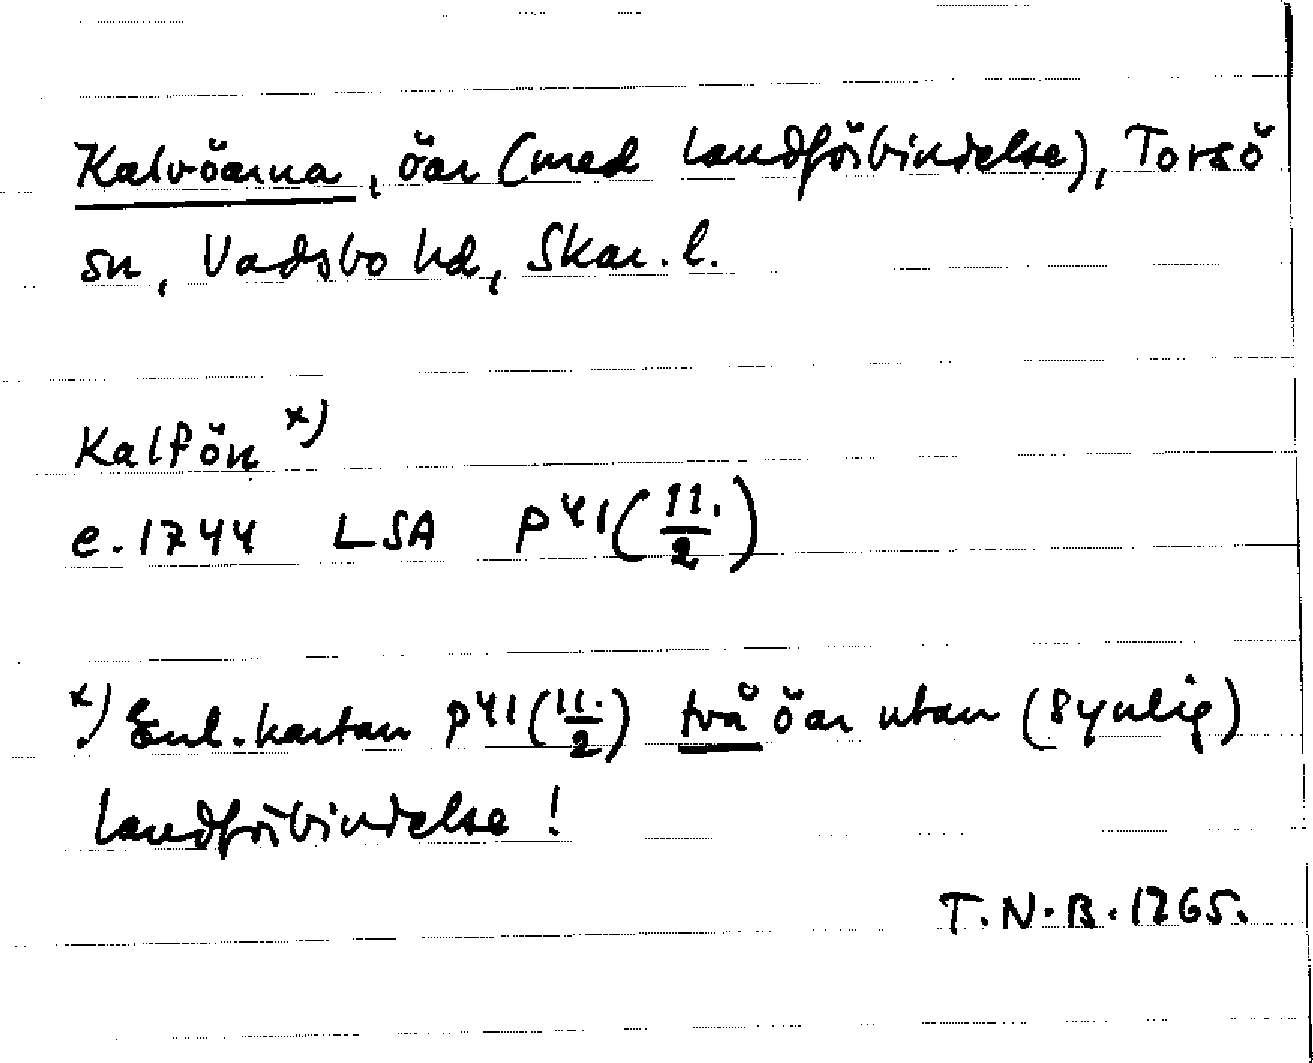 Kalvöarna, öar (med landförbindelse), Torsö
sn, Vadsbo hd, Skar. l.
Kalfön x)
e. 1744 LSA P41(11./2)
x) Enl. kartan P41(11./2) två öar utan (synlig)
landförbindelse!
T.N.B. 1765.